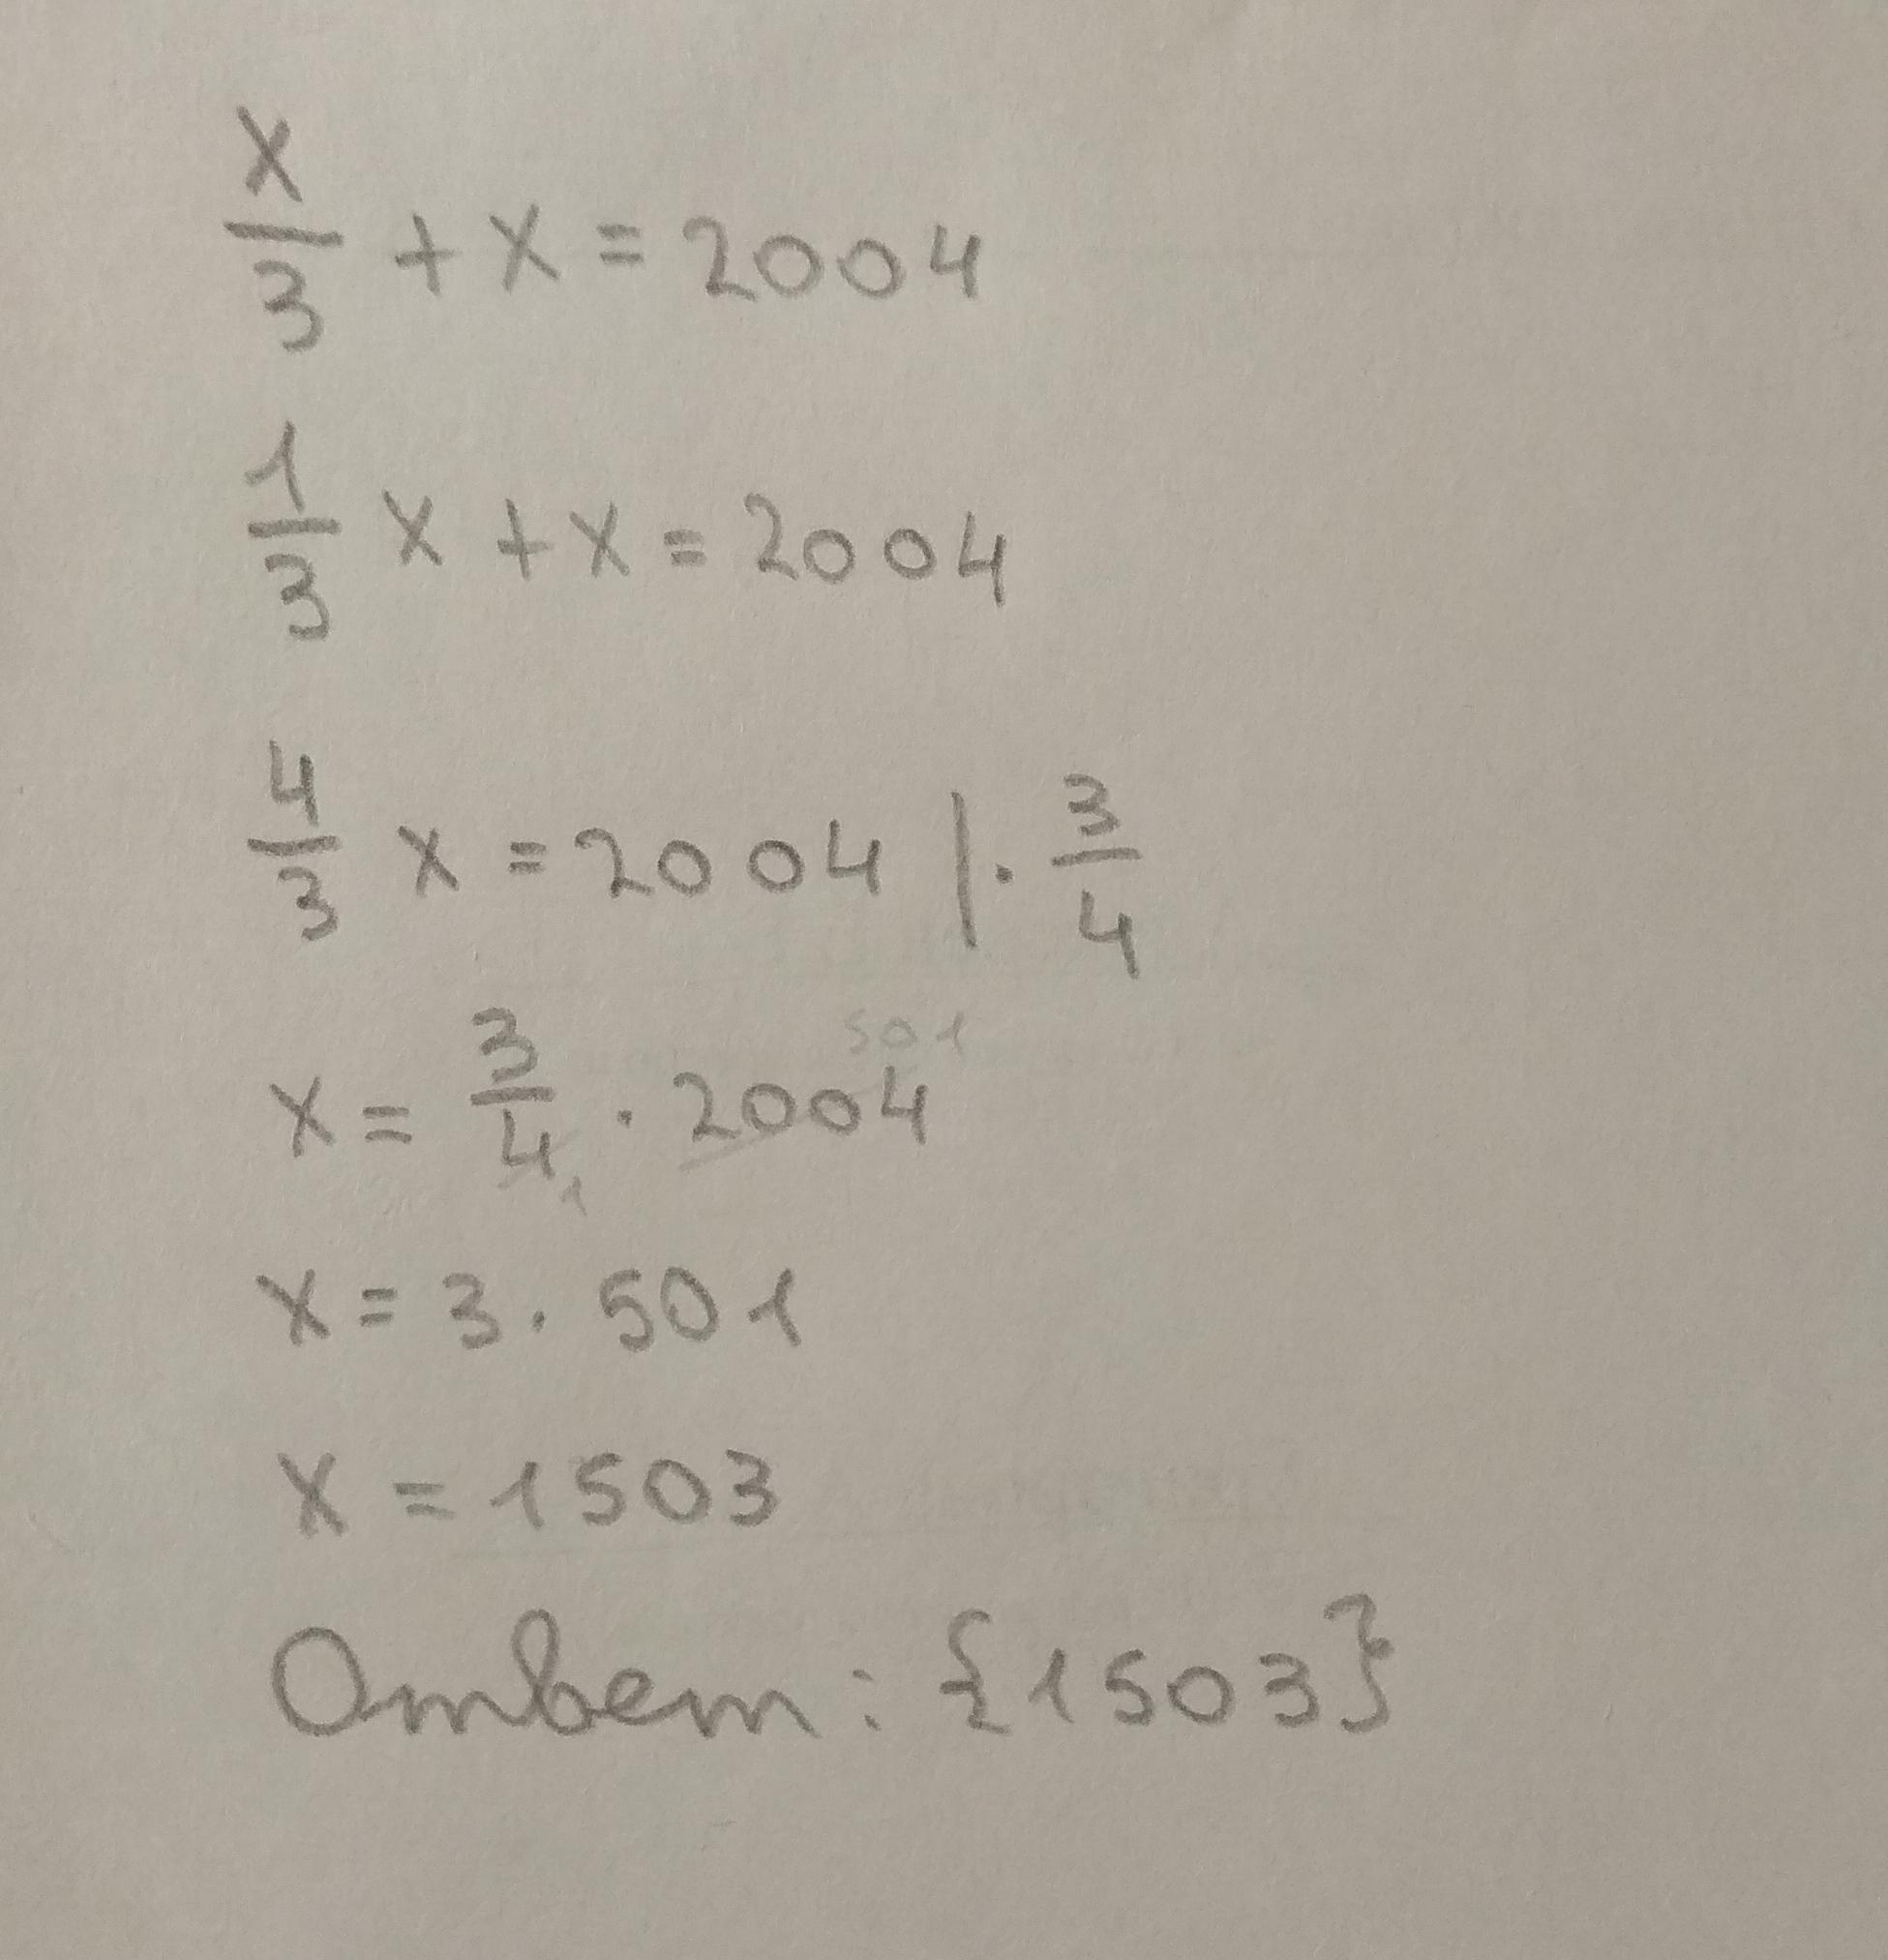 x/3 + x = 2004
1/3 x + x = 2004
4/3 x = 2004 | · 3/4
x = 3/4 1 · 2004 501
x = 3 · 501
x = 1503
Ответ: {1503}